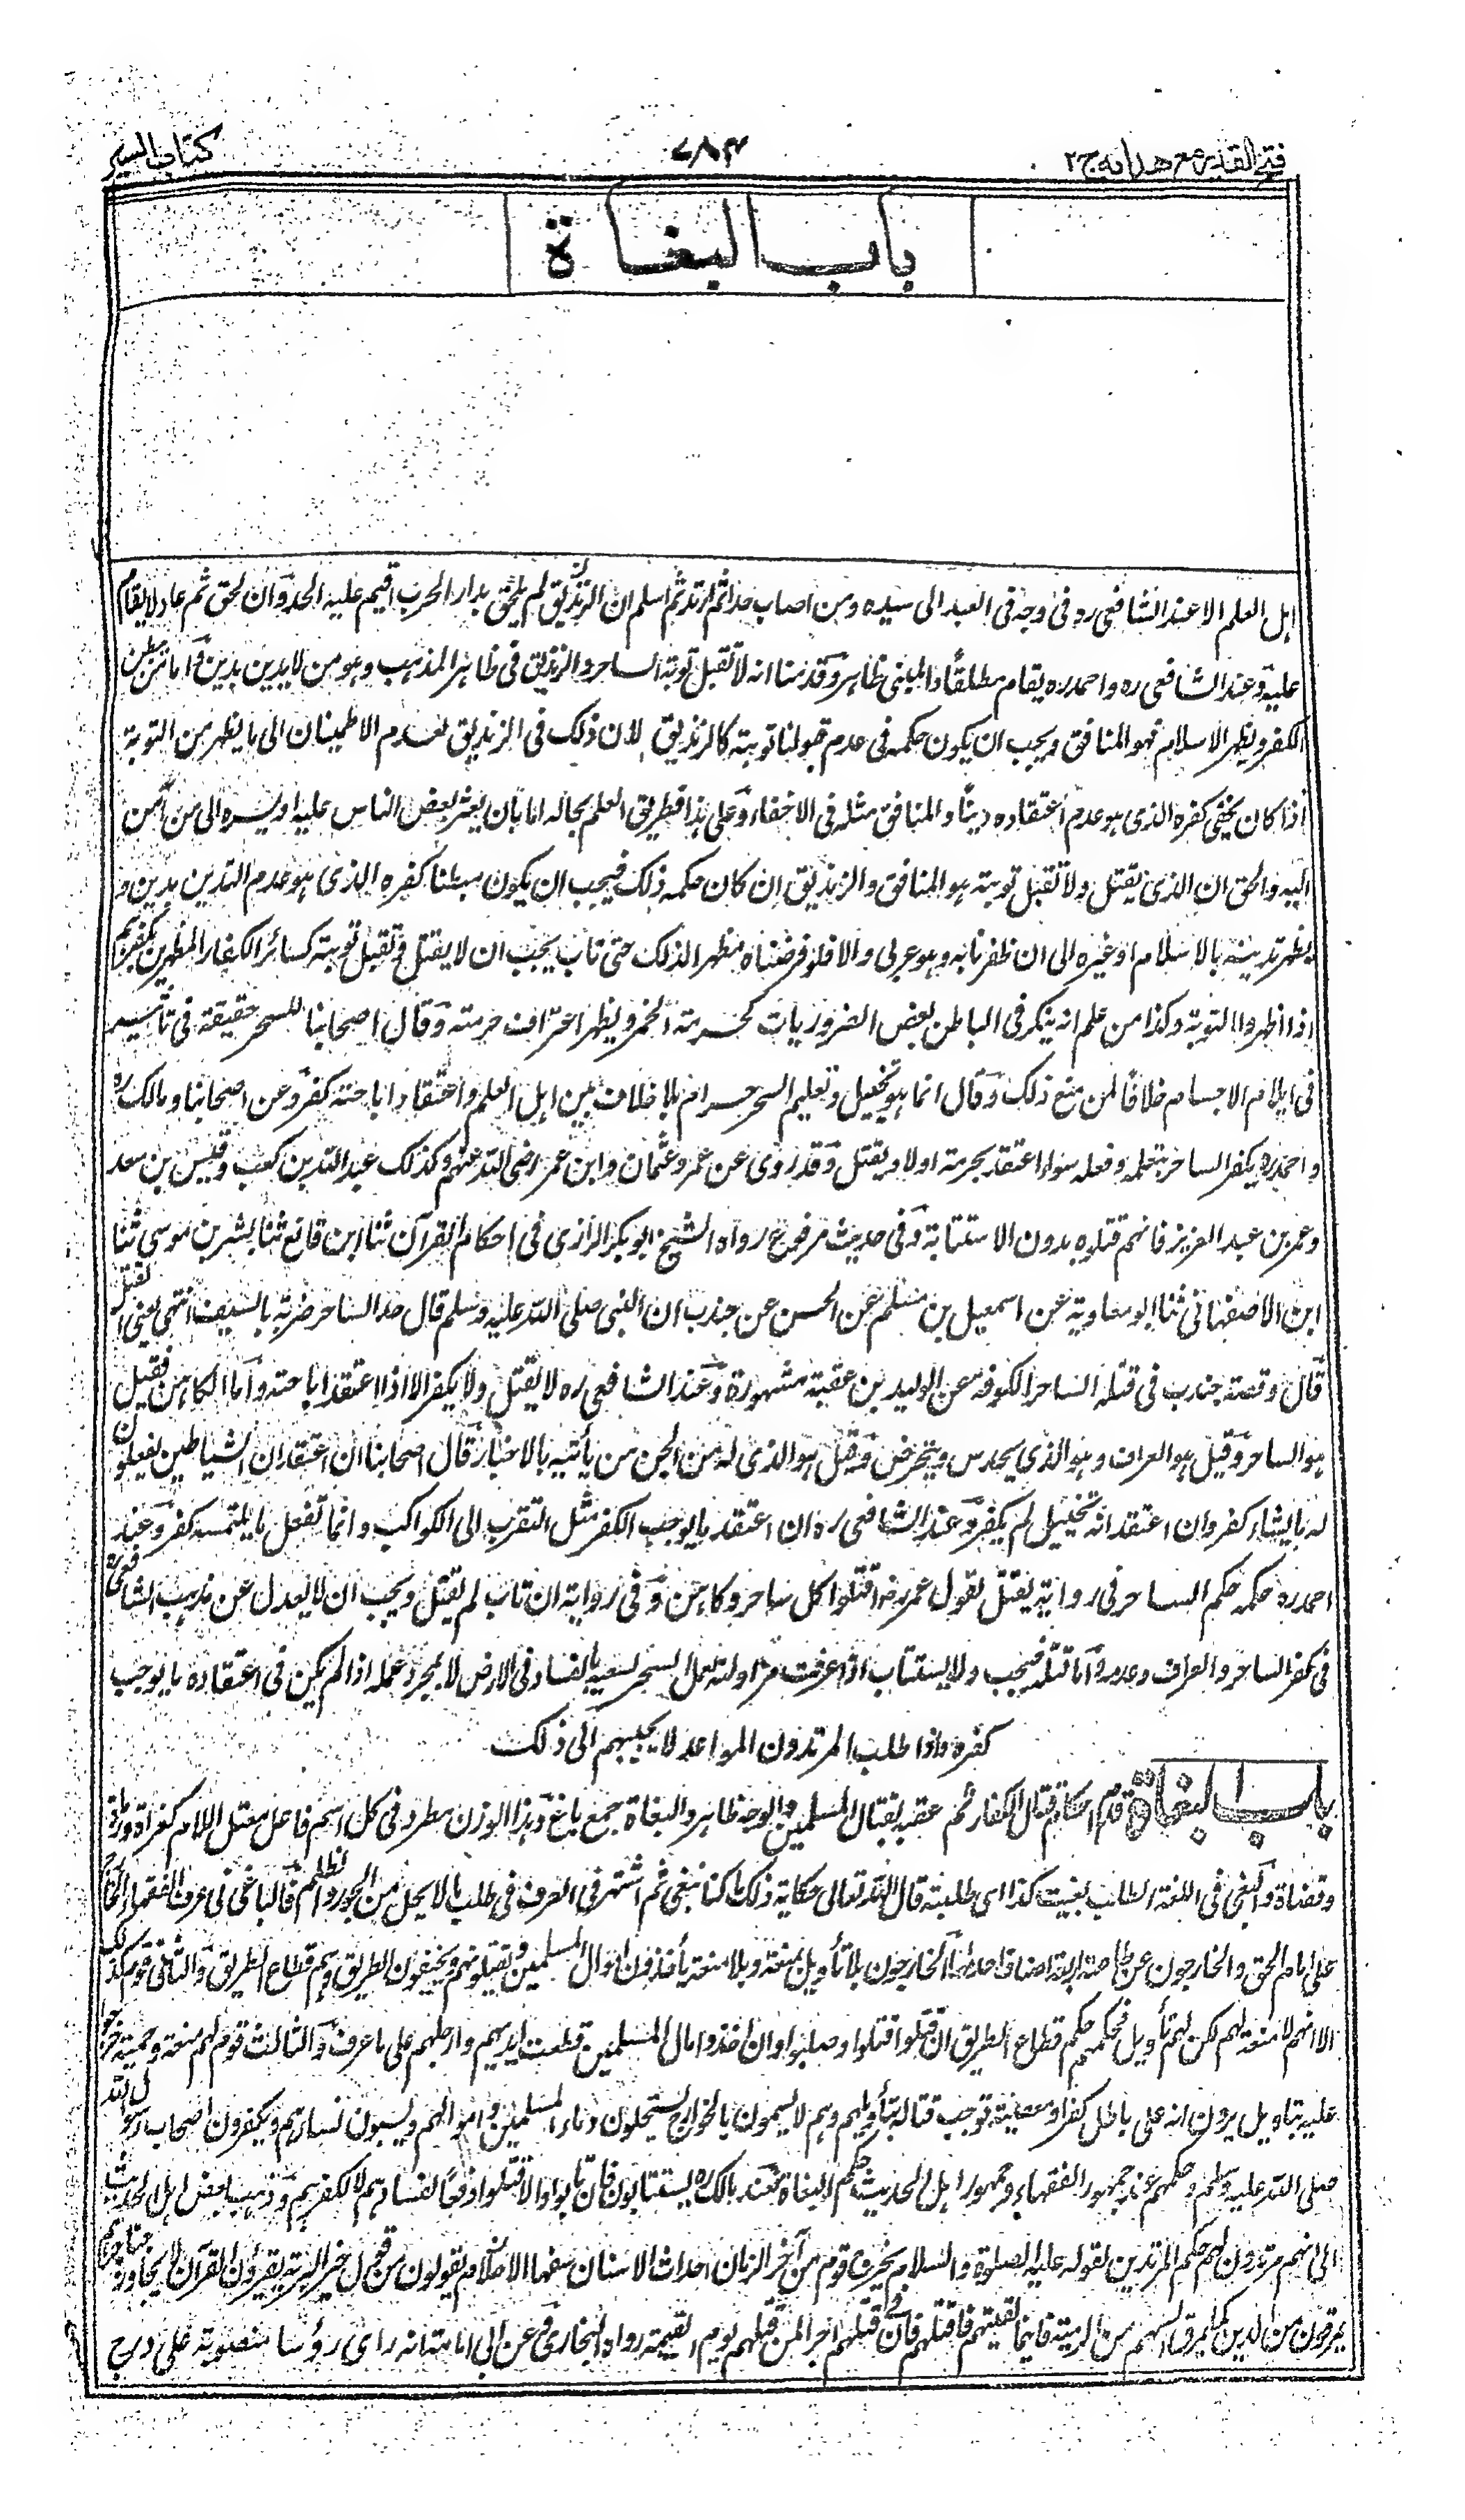 فتح القدير مع هدايه ج٢
٧٨٤
كتاب السير
باب البغاة
اهل العلم الا عند الشافعى ره فى وجه فى العبد الى سيده ومن اصاب حدا ثم ارتد ثم اسلم ان لم يلحق بدار الحرب اقيم عليه الحد وان لحق ثم عاد لا يقام
عليه وعند الشافعى ره واحمد ره يقام مطلقا والمبنى ظاهر وقدمنا انه لا تقبل توبة الساحر والزنديق فى ظاهر المذهب وهو من لا يدين بدين واما من يبطن
الكفر ويظهر الاسلام فهو المنافق ويجب ان يكون حكمه فى عدم قبولنا توبته كالزنديق لان ذلك فى الزنديق لعدم الاطمينان الى ما يظهر من التوبة
اذا كان يخفى كفره الذى هو عدم اعتقاده دينا والمنافق مثله فى الاخفاء وعلى هذا فطريق العلم بحاله اما بان يعثر بعض الناس عليه او يسره الى من امن
اليه والحق ان الذى يقتل ولا تقبل توبته هو المنافق والزنديق ان كان حكمه ذلك فيجب ان يكون مبطنا كفره الذى هو عدم التدين بدين و
يظهر تدينه بالاسلام او غيره الى ان ظفرنا به وهو عربى والا فلو فرضناه مظهرا لذلك حتى تاب يجب ان لا يقتل وتقبل توبته كسائر الكفار المظهرين لكفرهم
اذا اظهروا التوبة وكذا من علم انه ينكر فى الباطن بعض الضروريات كحرمة الخمر ويظهر اعتراف حرمته وقال اصحابنا للسحر حقيقة فى تأثيره
فى ايلام الاجسام خلافا لمن منع ذلك وقال انما هو تخييل وتعليم السحر حرام بلا خلاف بين اهل العلم واعتقاد اباحته كفر وعن اصحابنا ومالك ره
واحمد ره يكفر الساحر بتعلمه وفعله سواء اعتقد بحرمته اولا ويقتل وقد روى عن عمر وعثمان وابن عمر رضى الله عنهم وكذلك عبد الله بن كعب وقيس بن سعد
وعمر بن عبد العزيز فانهم قتلوه بدون الاستتابة وفى حديث مرفوع رواه الشيخ ابو بكر الرازى فى احكام القرآن ثنا ابن قانع ثنا بشر بن موسى ثنا
ابن الاصفهانى ثنا ابو معاوية عن اسمعيل بن مسلم عن الحسن عن جندب ان النبى صلى الله عليه وسلم قال حد الساحر ضربة بالسيف انتهى يعنى القتل
قال وقصة جندب فى قتله الساحر بالكوفه عن الوليد بن عقبة مشهورة وعند الشافعى ره لا يقتل ولا يكفر الا اذا اعتقد اباحته واما الكاهن فقيل
هو الساحر وقيل هو العراف وهو الذى يحدس ويتخرص وقيل هو الذى له من الجن من يأتيه بالاخبار قال اصحابنا ان اعتقد ان الشياطين يفعلون
له ما يشاء كفر وان اعتقد انه تخييل لم يكفر وعند الشافعى ره ان اعتقد ما يوجب الكفر مثل التقرب الى الكواكب وانها تفعل ما يلتمسه كفر وعند
احمد ره حكمه حكم الساحر فى رواية يقتل لقول عمر رضـ اقتلوا كل ساحر وكاهن وفى رواية ان تاب لم يقتل ويجب ان لا يعدل عن مذهب الشافعى ره
فى كفر الساحر والعراف وعدمه واما قتله فيجب ولا يستتاب اذا عرفت مزاولته لعمل السحر لسعيه بالفساد فى الارض لا بمجرد عمله اذا لم يكن فى اعتقاده ما يوجب
كفره واذا طلب المرتدون الموادعة لا يجيبهم الى ذلك
باب البغاة قدم احكام قتال الكفار ثم عقبه بقتال المسلمين والوجه ظاهر والبغاة جمع باغ وهذا الوزن مطرد فى كل اسم فاعل معتل اللام كغزاة ورماة
وقضاة والبغى فى اللغة الطلب بغيت كذا اى طلبته قال الله تعالى حكاية ذلك ما كنا نبغى ثم اشتهر فى العرف فى طلب ما لا يحل من الجور والظلم فالباغى فى عرف الفقهاء الخارج
على امام الحق والخارجون عن طاعته اربعة اصناف احدها الخارجون بلا تأويل بمنعة وبلا منعة يأخذون اموال المسلمين ويقتلونهم ويخيفون الطريق وهم قطاع الطريق والثانى قوم كذلك
الا انهم لا منعة لهم لكن لهم تأويل فحكمهم حكم قطاع الطريق ان قتلوا قتلوا وصلبوا وان اخذوا مال المسلمين قطعت ايديهم وارجلهم على ما عرف والثالث قوم لهم منعة وحمية خرجوا
عليه بتاويل يرون انه على باطل كفر او معصية توجب قتاله بتأويلهم وهم لا يسمون بالخوارج يستحلون دماء المسلمين واموالهم ويسبون نساءهم ويكفرون اصحاب رسول الله
صلى الله عليه وسلم وحكمهم عند جمهور الفقهاء وجمهور اهل الحديث حكم البغاة وعند مالك ره يستتابون فان تابوا والا قتلوا دفعا لفسادهم لا لكفرهم وذهب بعض اهل الحديث
الى انهم مرتدون لهم حكم المرتدين لقوله عليه الصلوة والسلام يخرج قوم من آخر الزمان احداث الاسنان سفهاء الاحلام يقولون من قول خير البرية يقرؤن القرآن لا يجاوز حناجرهم
يمرقون من الدين كما يمرق السهم من الرمية فاينما لقيتموهم فاقتلوهم فان فى قتلهم اجر المن قتلهم يوم القيمة رواه البخارى وعن ابى امامة انه راى رؤسا منصوبة على درج